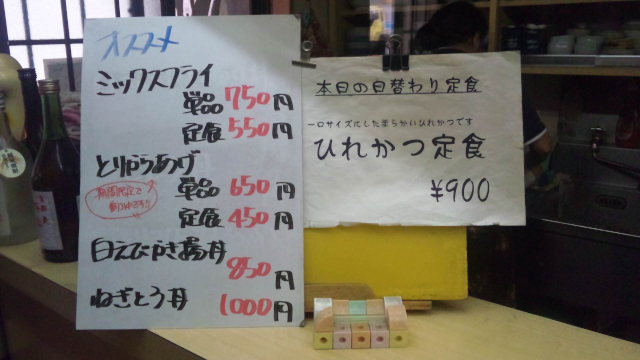 オススメ
ミックスフライ
単品 750円
定食 550円
とりからあげ
単品 650円
定食 450円
白えびかき揚丼
850円
ねぎとろ丼
1000円
本日の日替わり定食
一口サイズにした柔らかいひれかつです
ひれかつ定食
¥900